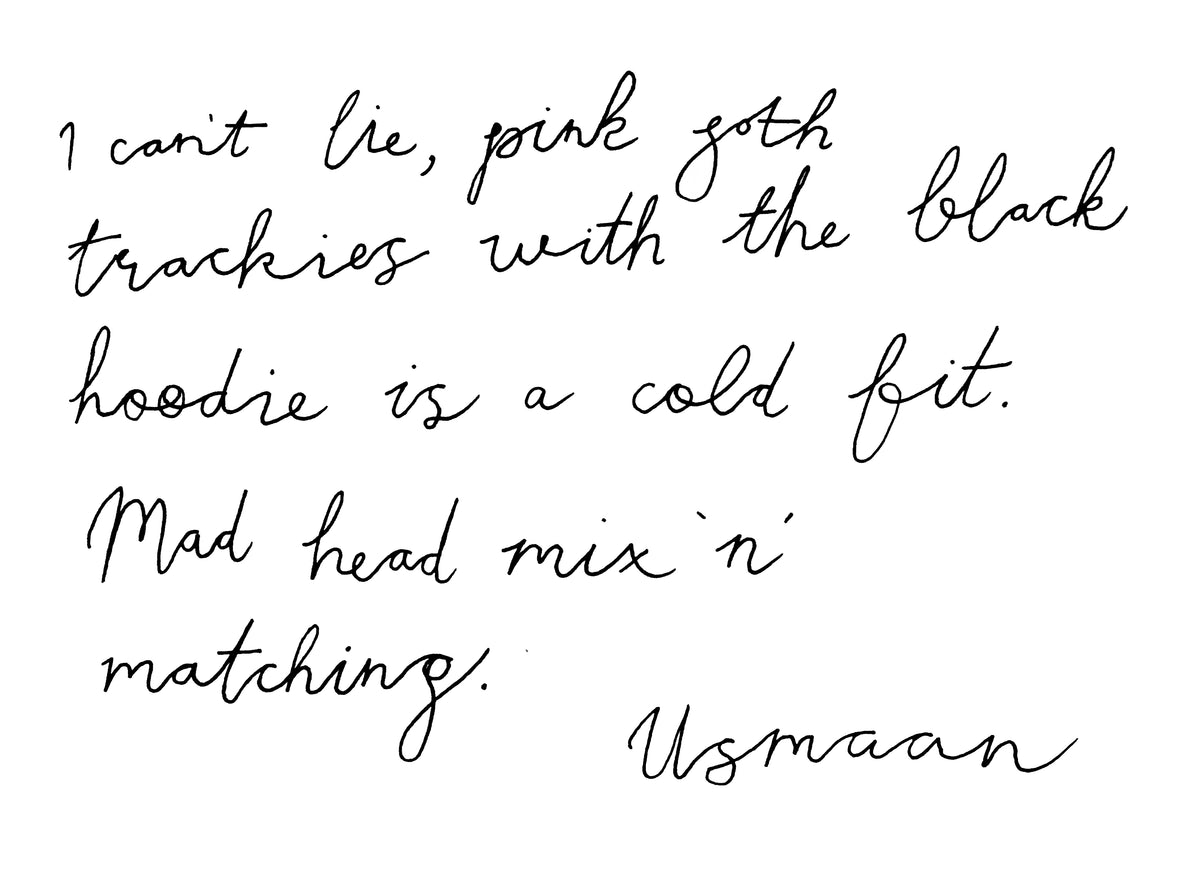 I can't lie, pink goth
trackies with the black
hoodie is a cold fit.
Mad head mix 'n'
matching.
Usmaan